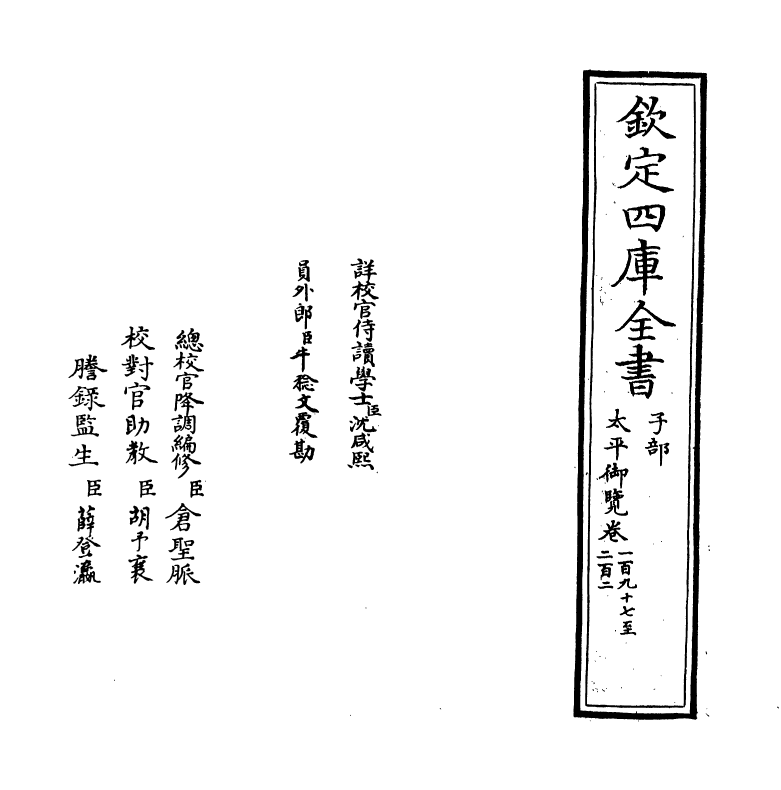 欽定四庫全書
子部
太平御覽卷一百九十七至
二百二
詳校官侍讀學士臣沈咸熙
員外郎臣牛稔文覆勘
總校官降調編修臣倉聖脈
校對官助教臣胡予襄
謄錄監生臣薛登瀛